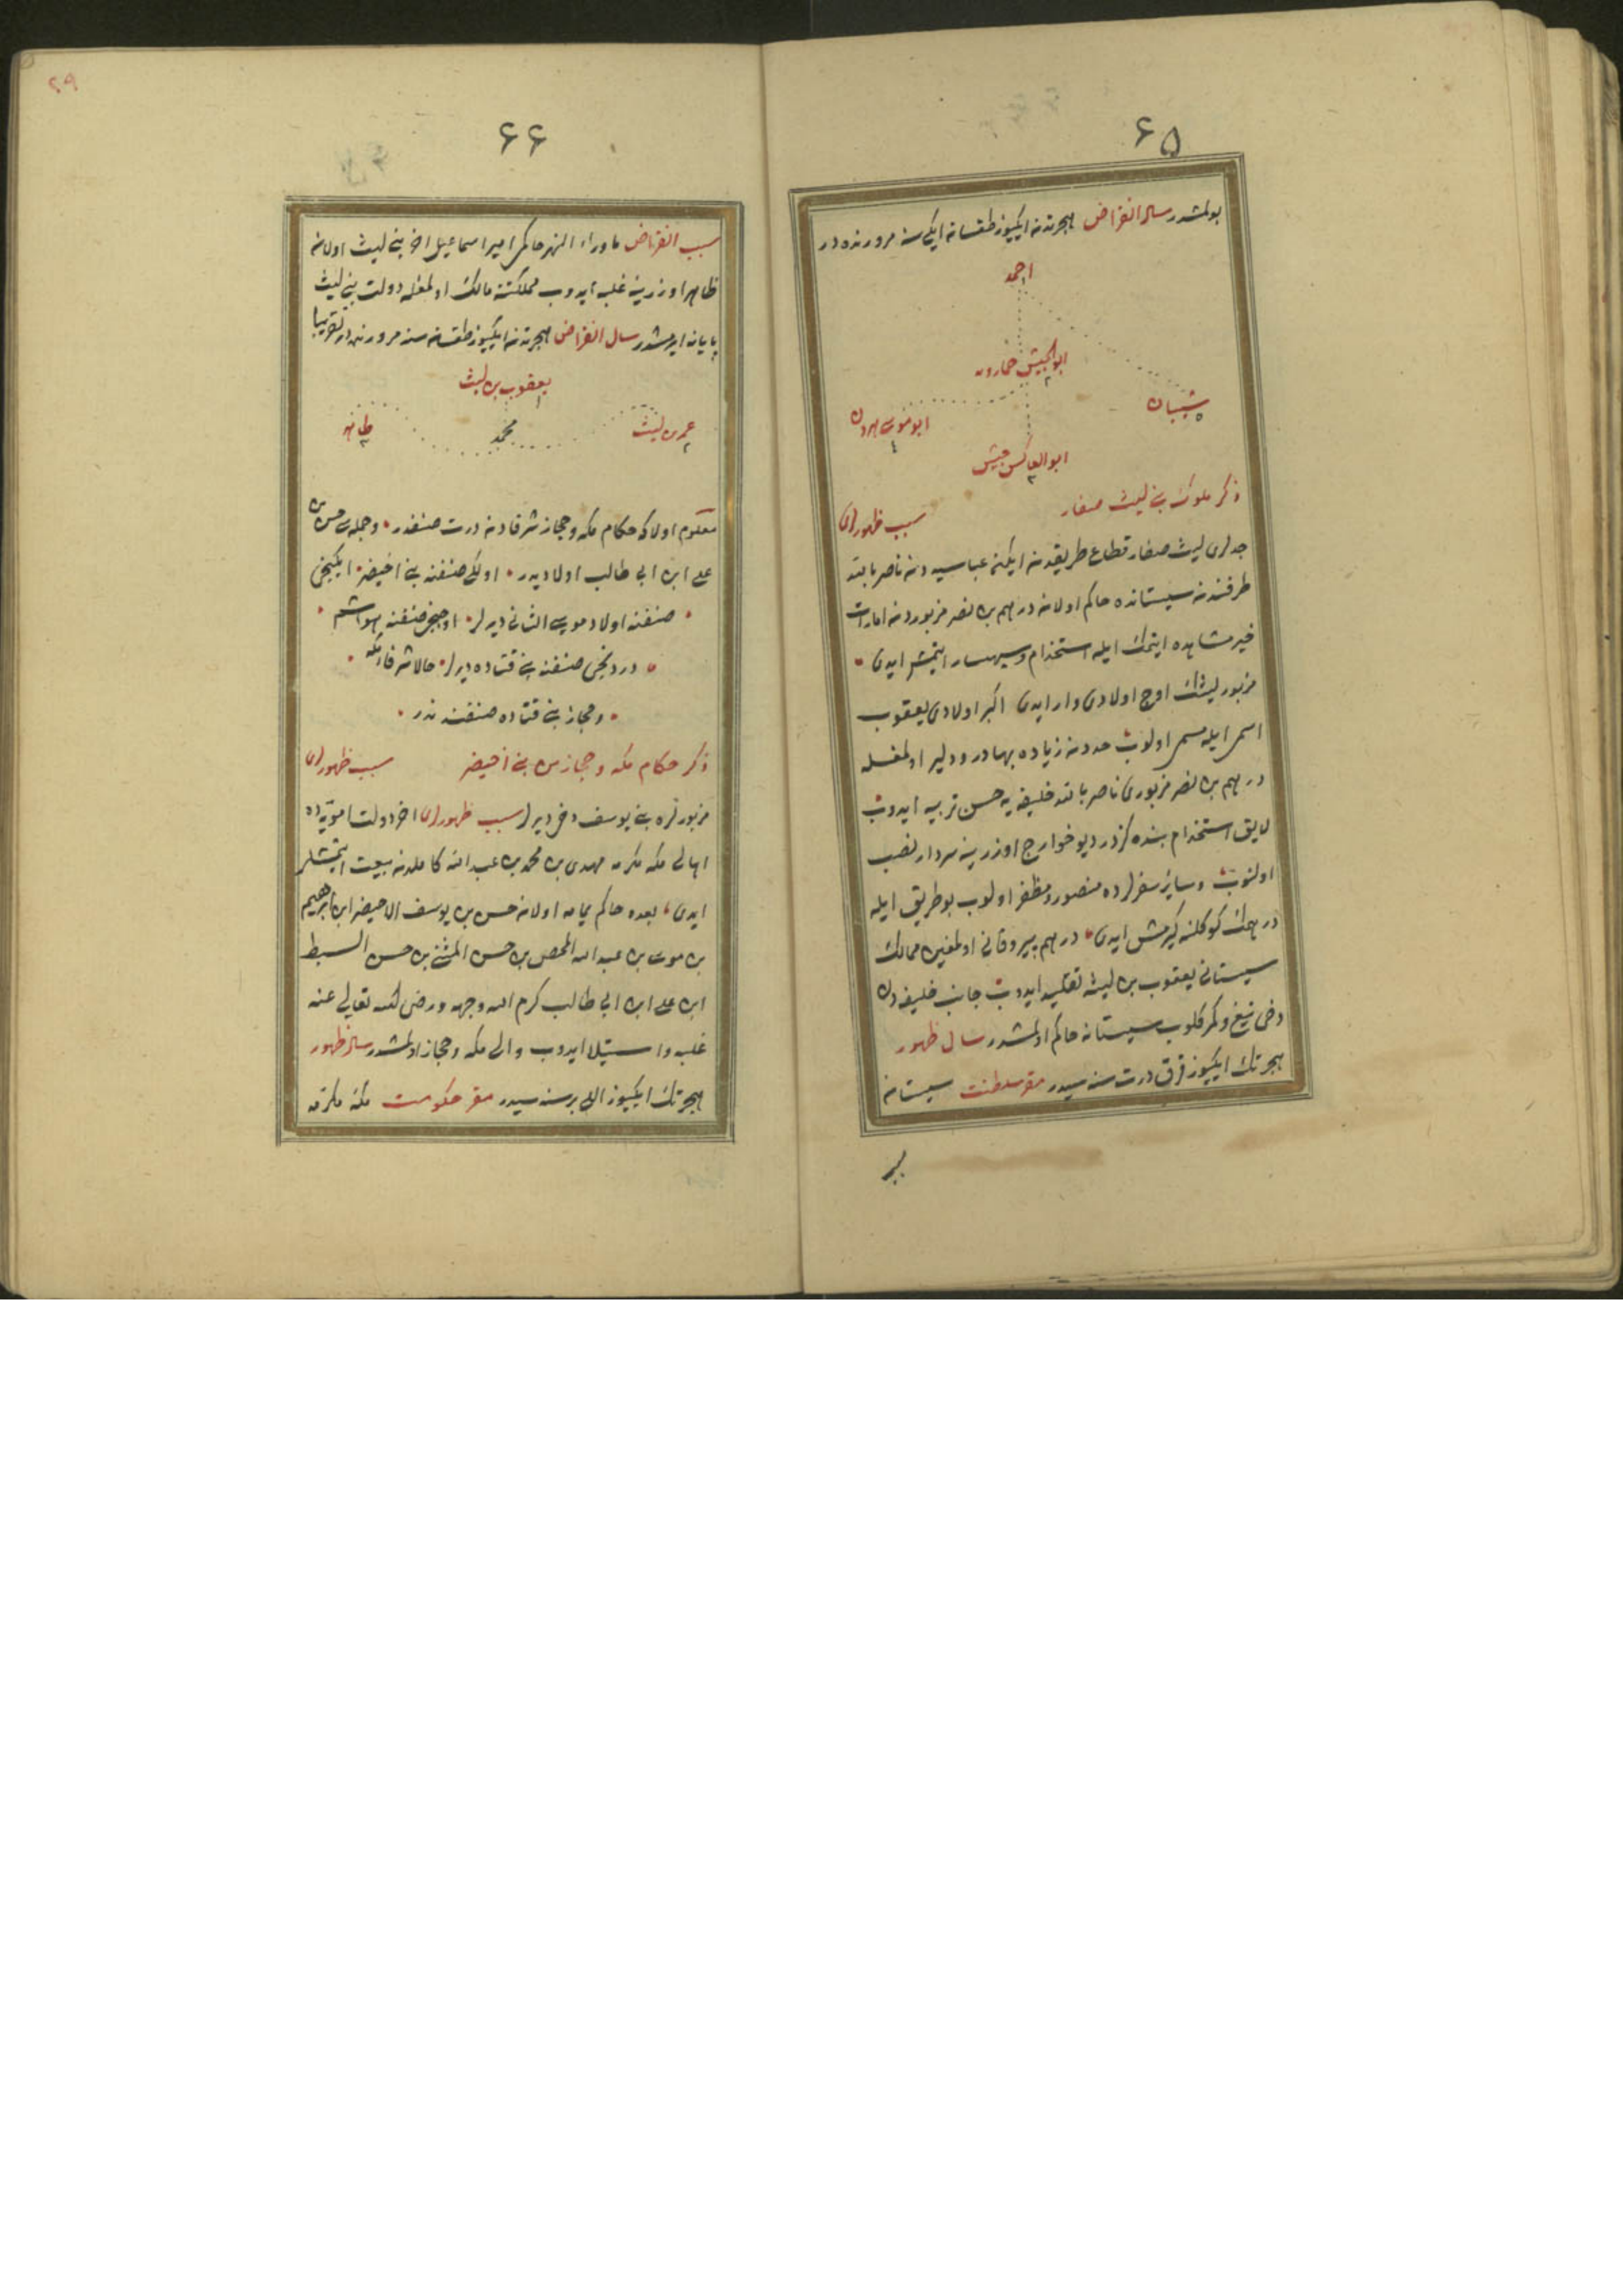 ۶۵
بولمشدر سال انقراض هجرتدن ایکیوز طقسان ایکی سنه مرورنده در
احمد
ابو الجیش خمارویه
۲
شیبان
۵
ابو موسی هرون
٤
ابو العساکر جیش
۳
ذکر ملوک بنی لیث صفار
سبب ظهورلری
جدلری لیث صفار قطاع طریقدن ایکن عباسیه دن ناصر بالله
طرفندن سیستانده حاکم اولان درهم بن نصر مزبوردن امارات
خیر مشاهده ایتمک ایله استخدام و سپهسالار ایتمش ایدی
مزبور لیثک اوچ اولادی وار ایدی اکبر اولادی یعقوب
اسمی ایله مسمی اولوب حددن زیاده بهادر و دلیر اولمغله
درهم بن نصر مزبوری ناصر بالله خلیفه یه حسن تربیه ایدوب
لایق استخدام بنده کزدر دیو خوارج اوزرینه سردار نصب
اولنوب و سایر سفرلرده منصور و مظفر اولوب بو طریق ایله
درهمک کوکلنه کیرمش ایدی درهم پیر و فانی اولمغین ممالک
سیستانی یعقوب بن لیثه تقلید ایدوب جانب خلیفه دن
دخی تیغ و کمر کلوب سیستانه حاکم اولمشدر سال ظهور
هجرتک ایکیوز قرق درت سنه سیدر مقر سلطنت سیستان
سبب
۲۹
۶۶
سبب انقراض ماوراء النهر حاکمی امیر اسماعیل اخر بنی لیث اولان
طاهر اوزرینه غلبه ایدوب مملکتنه مالک اولمغله دولت بنی لیث
پایانه ایرمشدر سال انقراض هجرتدن ایکیوز طقسان سنه مرورنده در تقریبا
یعقوب بن لیث
۱
عمر بن لیث
۲
محمد
طاهر
۳
معلوم اولا که حکام مکه و حجاز شرفادن درت صنفدر و جمله سی حسن بن
علی ابن ابی طالب اولادیدر اولکی صنفنه بنی اخیضر ایکنجی
صنفنه اولاد موسی الثانی دیرلر اوچنجی صنفنه هواشم
دردنجی صنفنه بنی قتاده دیرلر حالا شرفای مکه
و حجاز بنی قتاده صنفندندر
ذکر حکام مکه و حجاز من بنی اخیضر
سبب ظهورلری
مزبورلره بنی یوسف دخی دیرلر سبب ظهورلری اخر دولت امویه ده
اهالی مکه مکرمه مهدی بن محمد بن عبد الله کاملدن بیعت ایتمشلر
ایدی بعده حاکم یمامه اولان حسن بن یوسف الاخیضر ابن ابرهیم
بن موسی بن عبد الله المحض بن حسن المثنی بن حسن السبط
ابن علی ابن ابی طالب کرم الله وجهه و رضی الله تعالی عنه
غلبه و استیلا ایدوب والی مکه و حجاز اولمشدر سال ظهور
هجرتک ایکیوز اللی بر سنه سیدر مقر حکومت مکه مکرمه